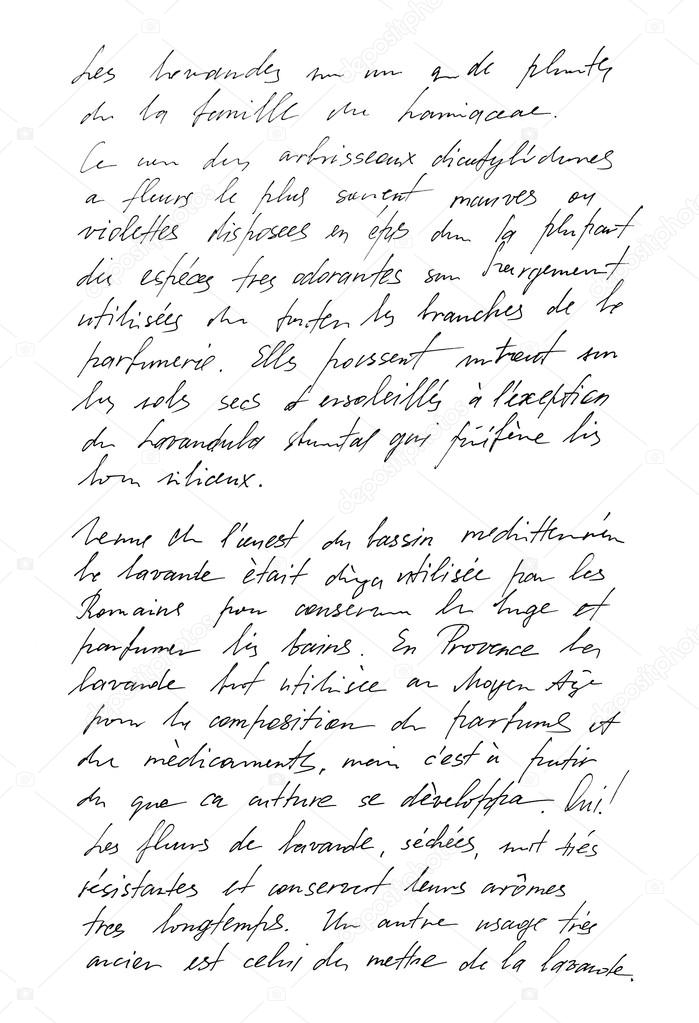 Les lavandes sont un         de plantes
de la famille de Lamiaceae.
Ce sont des arbrisseaux dicotylédones
a fleurs le plus souvent mauves ou
violettes disposees en épis dans la plupart
des espéces tres odorantes sont largement
utilisées dans toutes les branches de la
parfumerie. Elles poussent surtout sur
les sols secs et ensoleillés à l'éxception
de Lavandula           qui préfère les
        siliceux.
Venue de l'ouest du bassin
la lavande ètait dèja utilisée par les
Romains pour conserver le linge et
parfumer les bains. En Provence la
lavande fut utilisèe au Moyen Age
pour la composition de parfums et
de mèdicaments, mais c'est à partir
du         que sa culture se dèveloppa. Oui!
Les fleurs de lavande, séchées, sont trés
résistantes et conservent leurs arômes
tres longtemps. Un autre usage très
ancien est celui de mettre de la lavande.
depositphotos